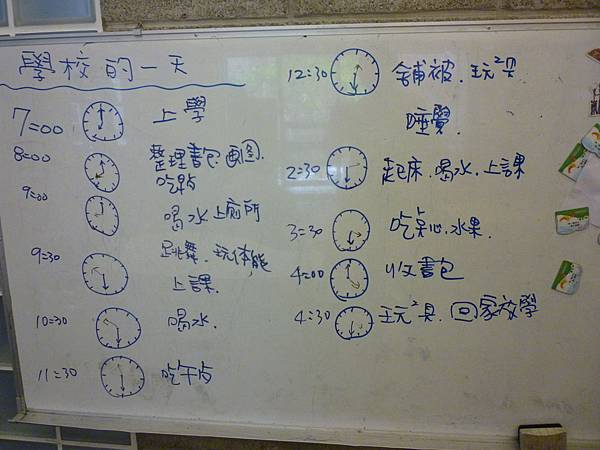 學校的一天
7=00 上學
8=00 整理書包.畫圖.
吃點
9=00 喝水上廁所
9=30 跳舞.玩体能
上課.
10=30 喝水.
11=30 吃午点
12=30 舖被.玩²具
睡覺.
2=30 起床.喝水.上課
3=30 吃点心.水果.
4=00 收書包
4=30 玩²具.回家放學